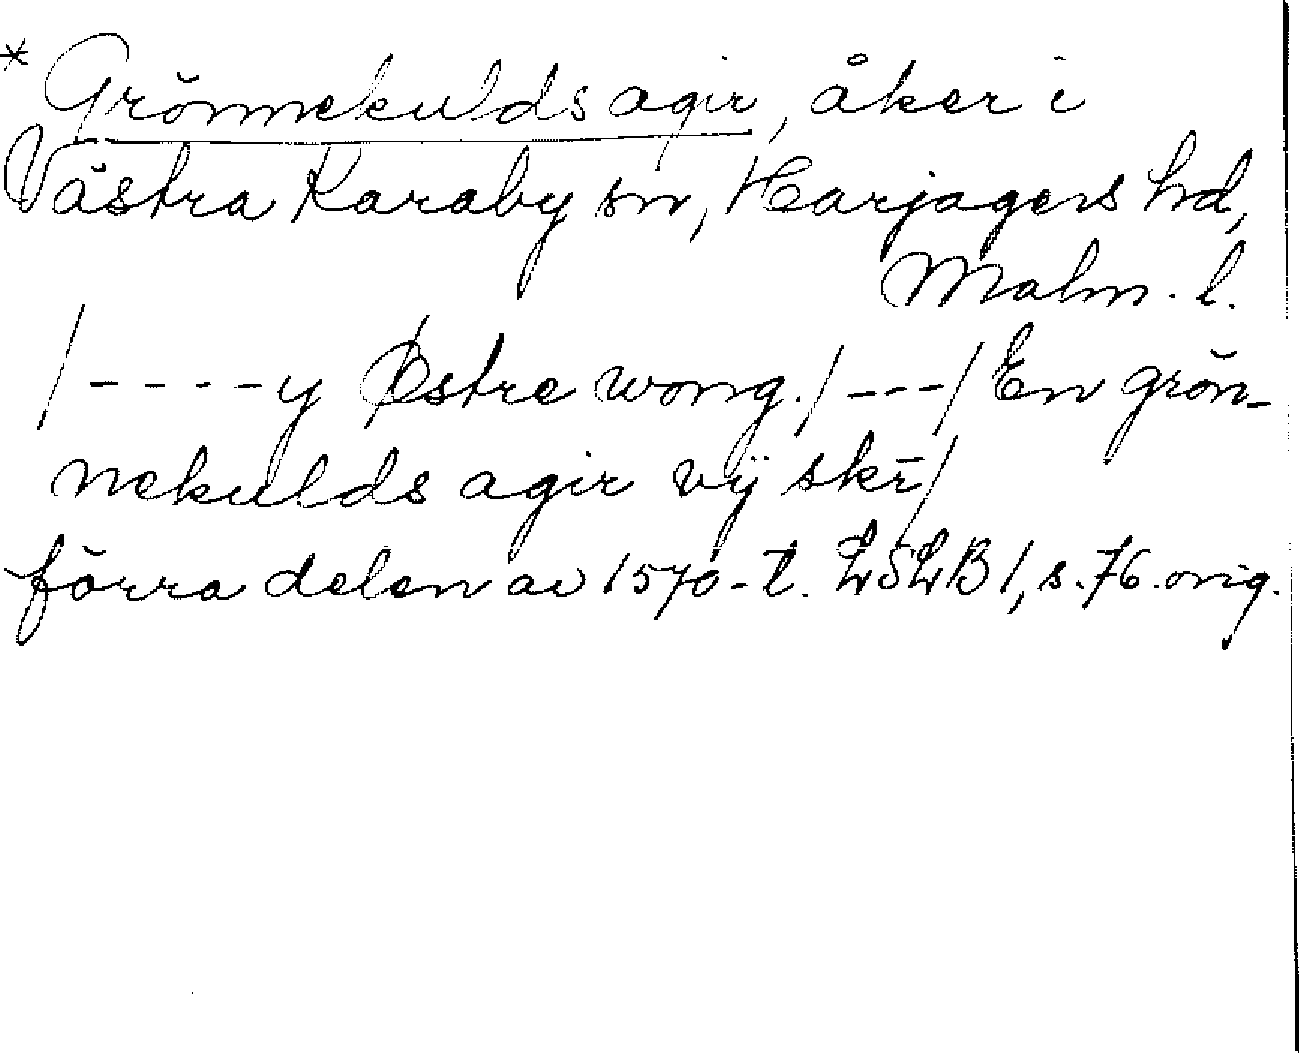 * Grönnekulds agir, åker i
Västra Karaby sn, Harjagers hd,
Malm. l.
/----y Østre wong./---/En grön-
nekulds agir vÿ skr̄/
förra delen av 1570-t. LSLB 1, s. 76. orig.